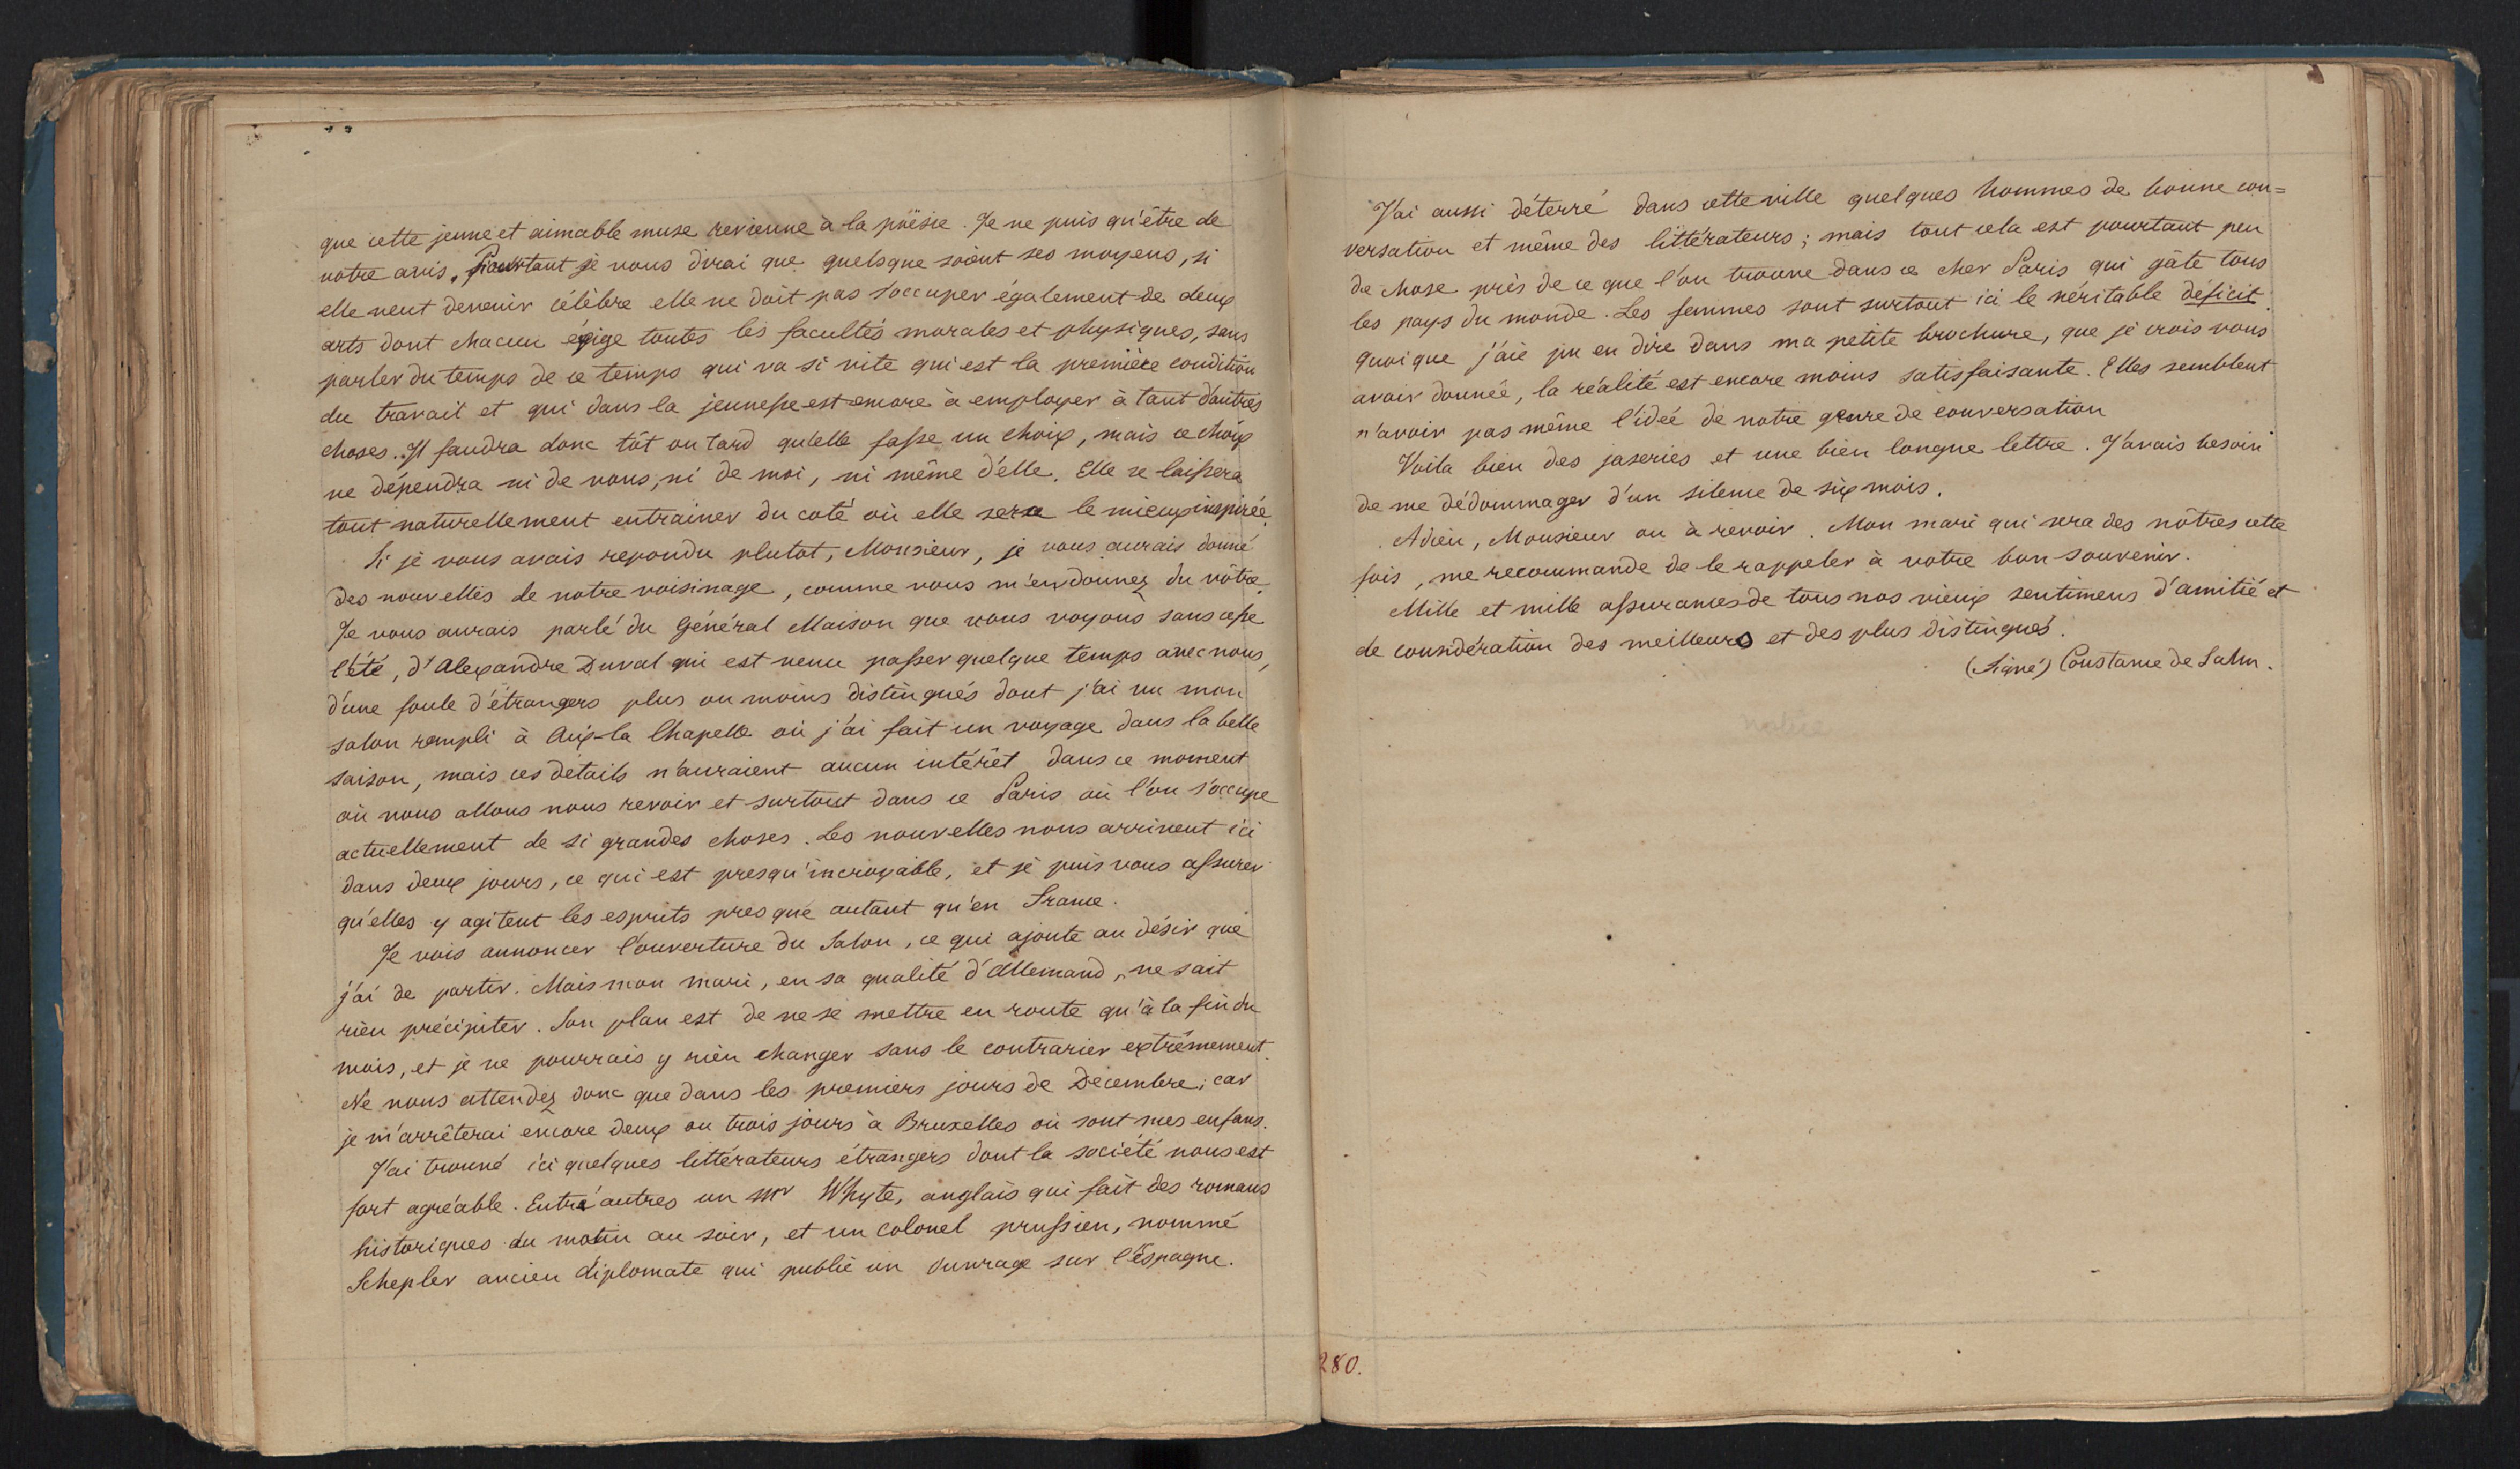 que cette jeune et aimable muse revienne à la poësie. Je ne puis qu'être de
votre avis. Pourtant je vous dirai que quelsque soient ses moyens, si
elle veut devenir célèbre elle ne doit pas s'occuper également de deux
arts dont chacun éxige toutes les facultés morales et physiques, sans
parler du temps de ce temps qui va si vite qui est la première condition
du travail et qui dans la jeunesse est encore à employer à tant d'autres
choses. Il faudra donc tôt ou tard qu'elle fasse un choix, mais ce choix
ne dépendra ni de vous, ni de moi, ni même d'elle. Elle se laissera
tout naturellement entrainer du coté où elle sera le mieux inspirée.
Si je vous avais repondu plutot, Monsieur, je vous aurais donné
des nouvelles de notre voisinage, comme vous m'en donnez du vôtre.
Je vous aurais parlé du Général Maison que nous voyons sans cesse
l'été, d'Alexandre Duval qui est venu passer quelque temps avec nous,
d'une foule d'étrangers plus ou moins distingués dont j'ai vu mon
salon rempli à Aix-la Chapelle où j'ai fait un voyage dans la belle
saison, mais ces détails n'auraient aucun intérêt dans ce moment
où nous allons nous revoir et surtout dans ce Paris où l'on s'occupe
actuellement de si grandes choses. Les nouvelles nous arrivent ici
dans deux jours, ce qui est presqu'incroyable, et je puis vous assurer
qu'elles y agitent les esprits presque autant qu'en France.
Je vois annoncer l'ouverture du Salon, ce qui ajoute au désir que
j'ai de partir. Mais mon mari, en sa qualité d'Allemand, ne sait
rien précipiter. Son plan est de ne se mettre en route qu'à la fin du
mois, et je ne pourrais y rien changer sans le contrarier extrêmement.
Ne nous attendez donc que dans les premiers jours de Decembre; car
je m'arrêterai encore deux ou trois jours à Bruxelles où sont mes enfans.
J'ai trouvé ici quelques littérateurs étrangers dont la société nous est
fort agréable. Entr'autres un Mr Whyte, anglais qui fait des romans
historiques du matin au soir, et un colonel prussien, nommé
Schepler ancien diplomate qui publie un ouvrage sur l'Espagne.
J'ai aussi déterré dans cette ville quelques hommes de bonne con=
versation et même des littérateurs; mais tout cela est pourtant peu
de chose près de ce que l'on trouve dans ce cher Paris qui gâte tous
les pays du monde. Les femmes sont surtout ici le véritable déficit.
quoique j'aie pu en dire dans ma petite brochure, que je crois vous
avoir donnée, la réalité est encore moins satisfaisante. Elles semblent
n'avoir pas même l'idée de notre genre de conversation
Voila bien des jaseries et une bien longue lettre. J'avais besoin
de me dédommager d'un silence de six mois.
Adieu, Monsieur ou à revoir. Mon mari qui sera des nôtres cette
fois, me recommande de le rappeler à votre bon souvenir.
Mille et mille assurances de tous nos vieux sentimens d'amitié et
de considération des meilleurs et des plus distingués.
(Signé) Constance de Salm.
280.